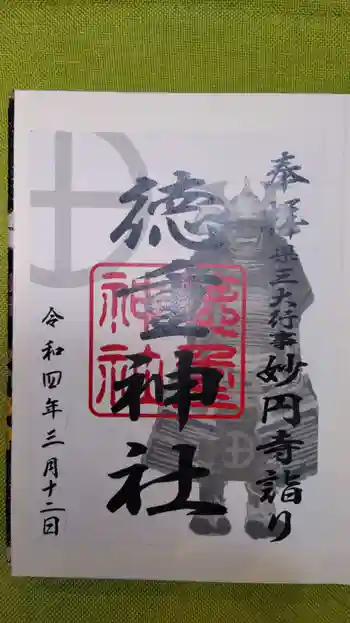 奉拝
県三大行事
妙円寺詣り
徳重神社
令和四年三月十二日